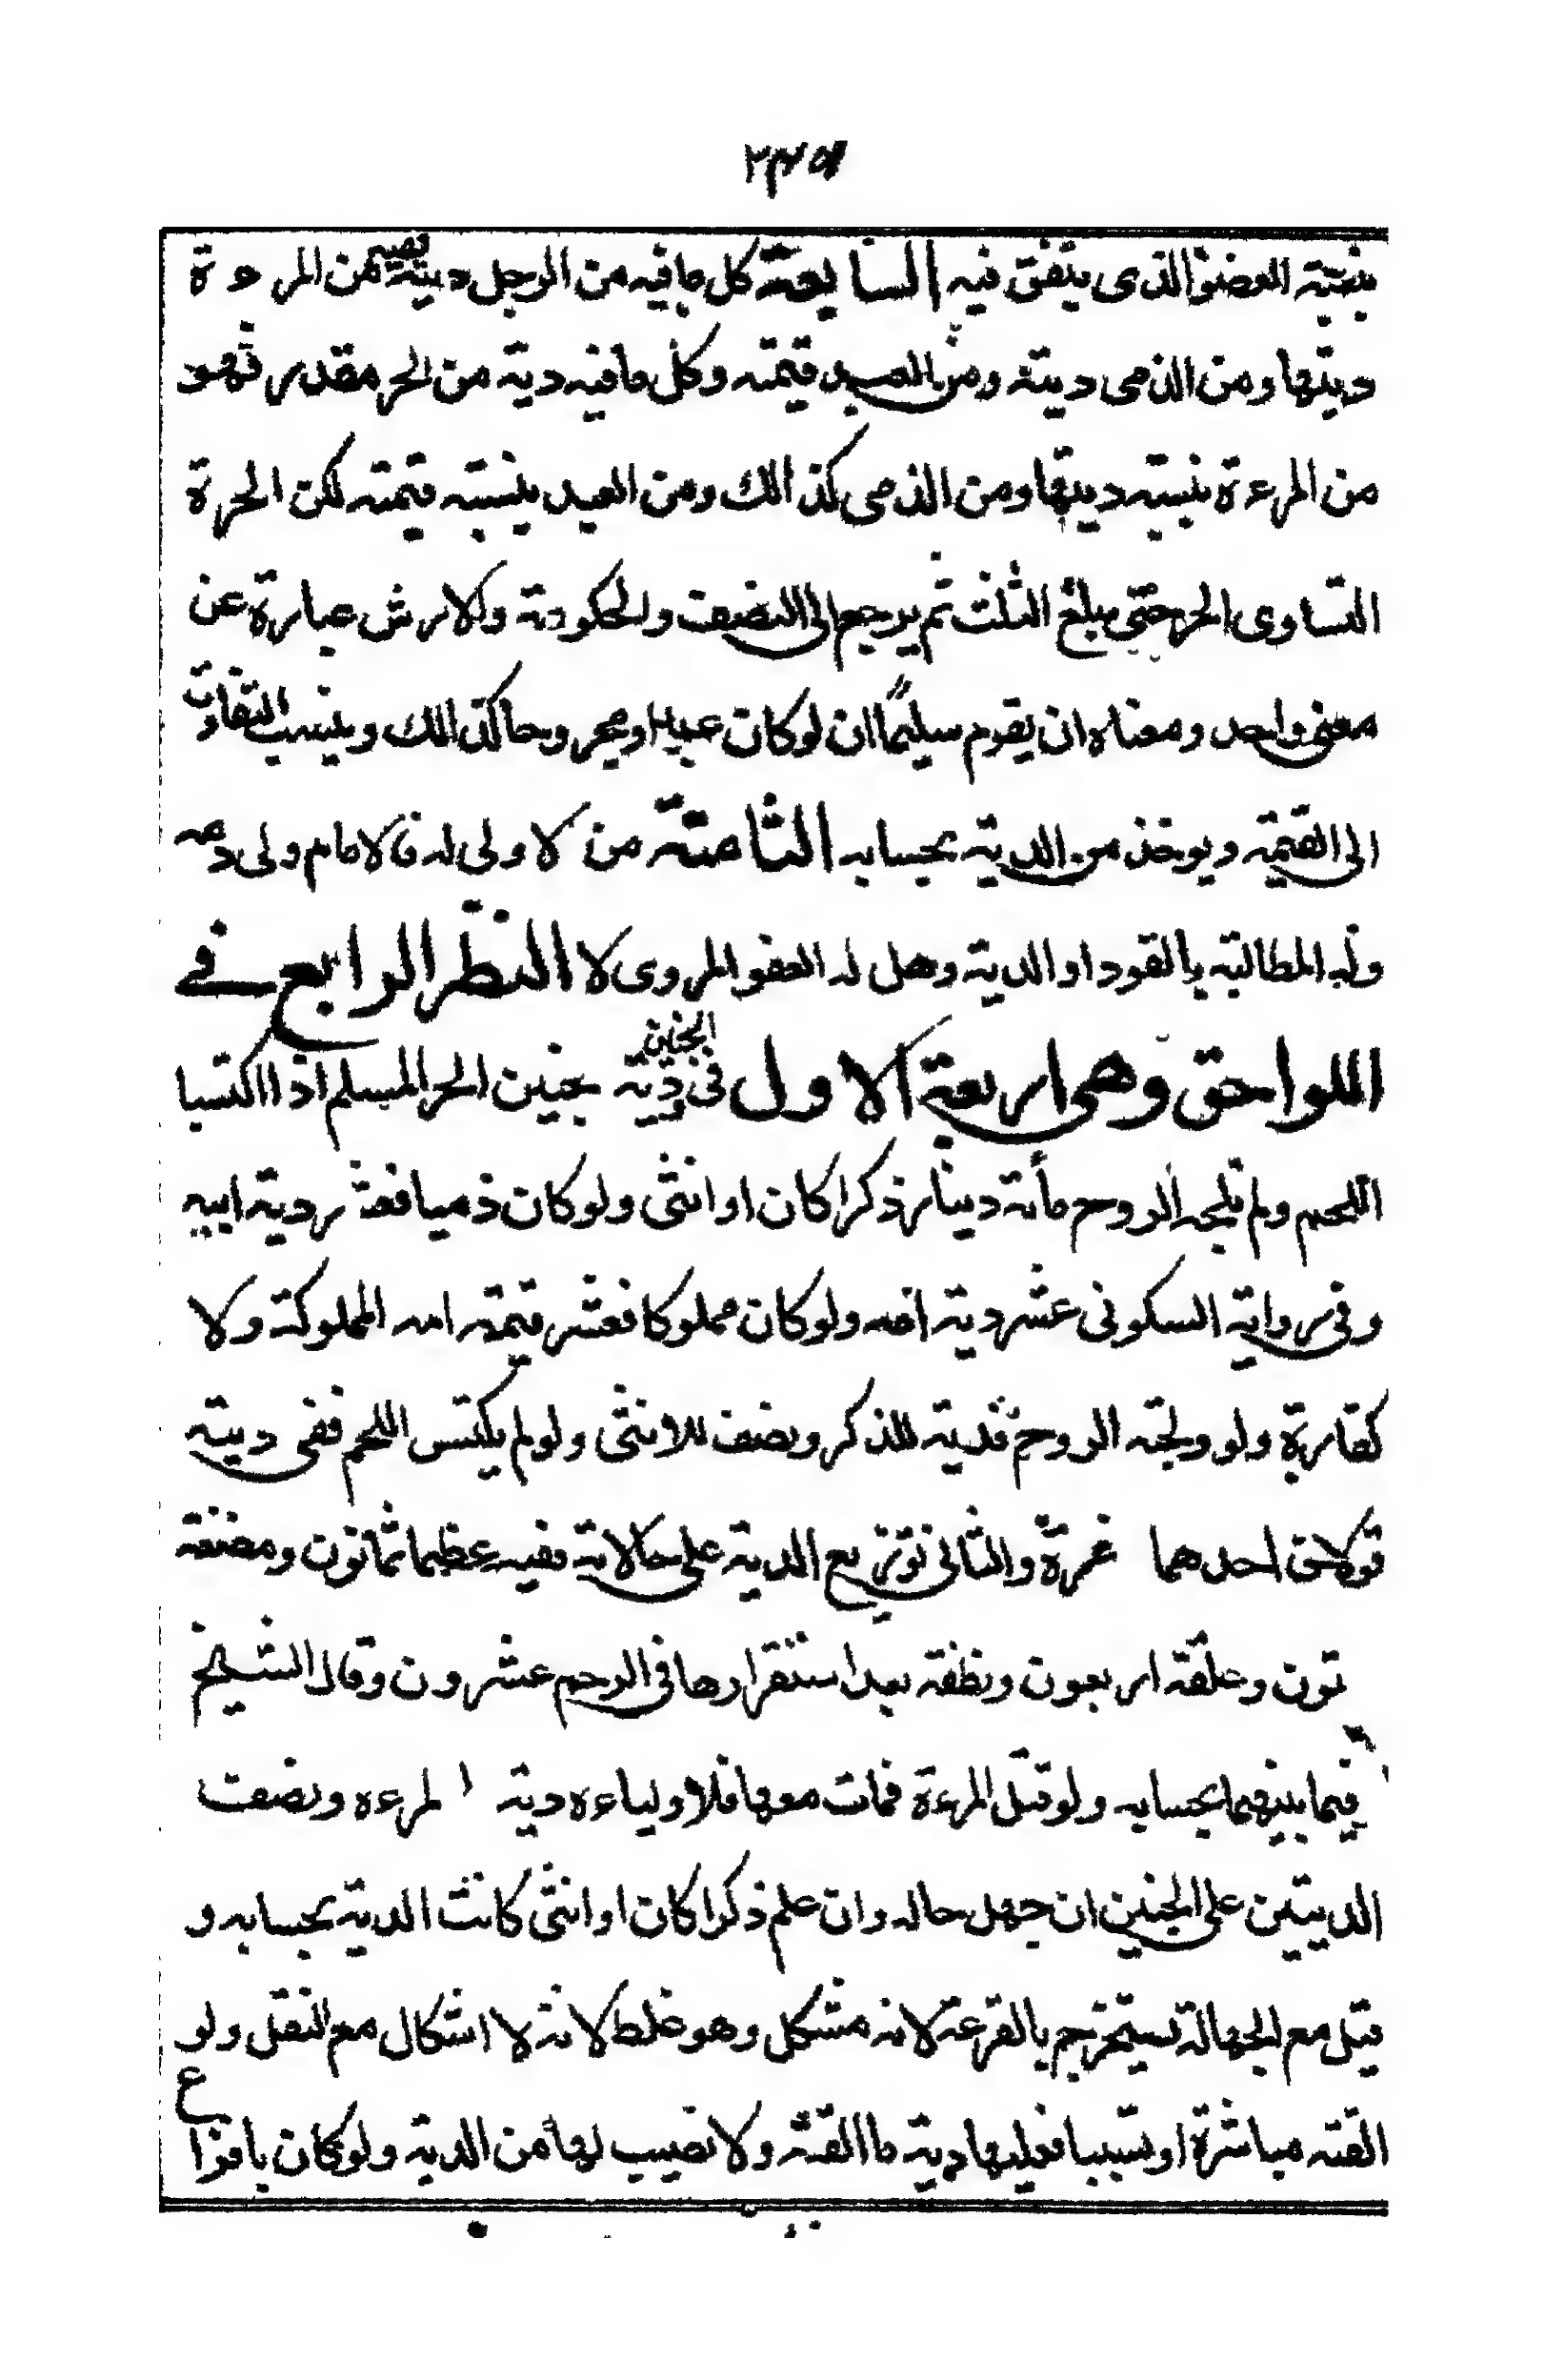 ٢٣٥
بنسبة العضو الذى يتفق فيه السابعة كل ما فيه من الرجل ديته ففيه من المرءة
ديتها ومن الذمى ديته ومن العبد قيمته وكل ما فيه دية من الحر مقدر فهو
من المرءة بنسبة ديتها ومن الذمى كذالك ومن العبد بنسبة قيمته لكن الحرة
التساوى الحر حتى يبلغ الثلث ثم يرجع الى النصف والحكومة والارش عبارة عن
معنى واحد ومعناه ان يقوم سليمًا ان لو كان عبدا ومجروحا كذالك وينسب التفاوت
الى القيمة ويوخذ من الدية بحسابه الثامنة من لا ولى له فالامام ولى دمه
وله المطالبة بالقود او الدية وهل له العفو المروى لا النظر الرابع في
اللواحق وهى اربعة الاول فى دية الجنين جنين الحر المسلم اذا اكتسا
اللحم ولم تلجه الروح مأتة دينار ذكرا كان او انثى ولو كان ذميا فعشر دية ابيه
وفى رواية السكونى عشر دية امه ولو كان مملوكا فعشر قيمة امه المملوكة ولا
كفارة ولو ولجته الروح فدية للذكر ونصف للانثى ولو لم يكتس اللحم ففى ديته
قولان احدهما غرة والثانى توزيع الدية على حالاته ففيه عظما ثمانون ومضغة
تون وعلقة اربعون ونطفة بعد استقرارها فى الرحم عشرون وقال الشيخ
فيما بينهما بحسابه ولو قتل المرءة فمات معها فلاولياءه دية المرءه ونصف
الديتين على الجنين ان جهل حاله وان علم ذكرا كان او انثى كانت الدية بحسابه و
قيل مع الجهالة يستخرج بالقرعة لانه مشكل وهو غلط لانه لا اشكال مع النقل ولو
القته مباشرة او تسبيبا فعليها دية ما القته ولا نصيب لها من الدية ولو كان بافزاع